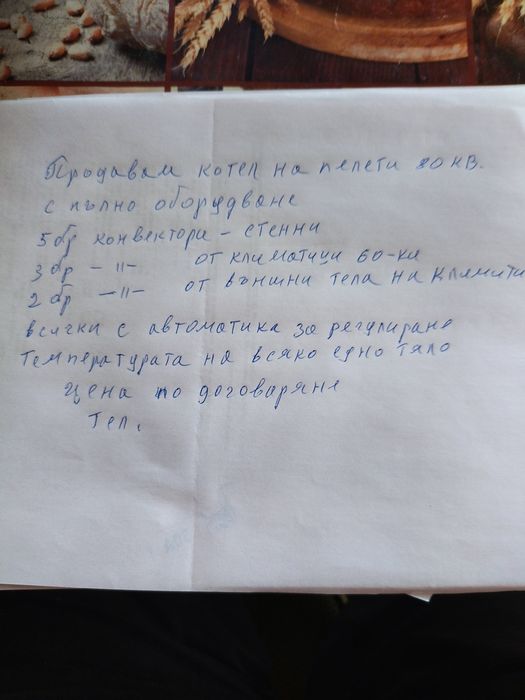 Продавам котел на пелети 80 кв.
с пълно оборудване
5 бр конвектори - стенни
3 бр - 11 - от климатици 60-ки
2 бр - 11 - от външни тела на климати
всички с автоматика за регулиране
температурата на всяко едно тяло
Цена по договаряне
Тел.